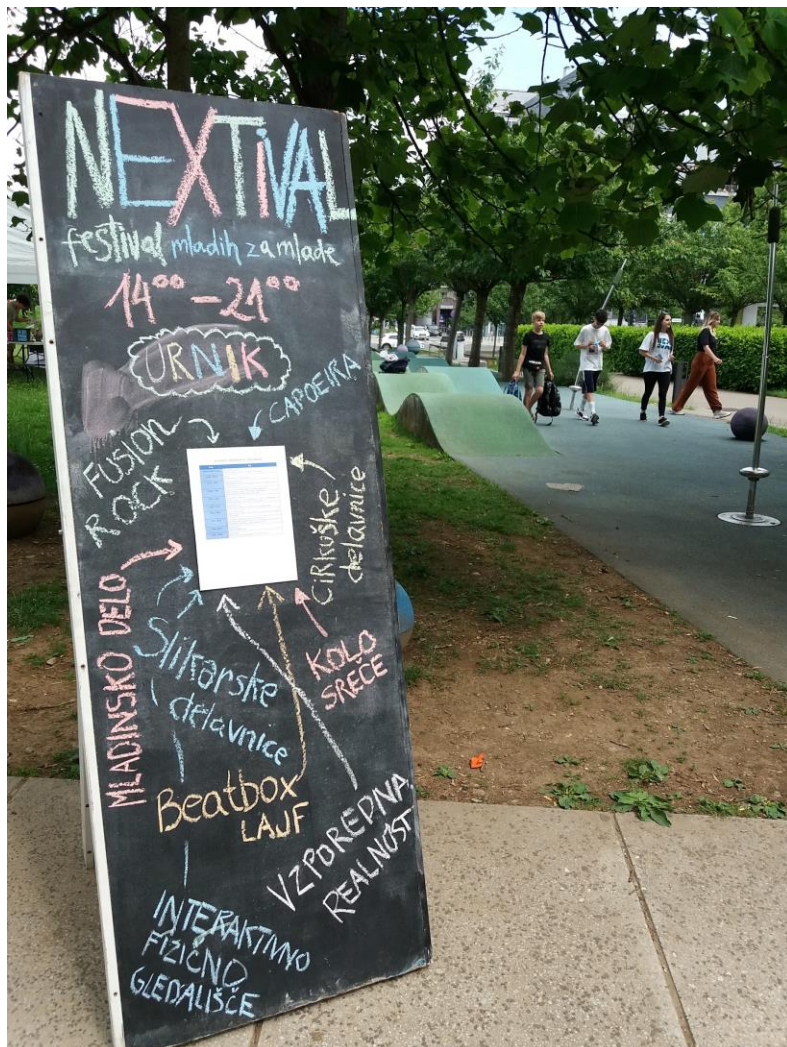 NEXTiVAL
festival mladih za mlade
14⁰⁰ – 21⁰⁰
URNIK
CAPOEIRA
FUSION
ROCK
CiRKUŠKE
delavnice
MLADINSKO DELO
Slikarske
delavnice
KOLO
SREČE
Beatbox
LAJF
VZPOREDNA
REALNOST
INTERAKTIVNO
FIZIČNO
GLEDALIŠČE